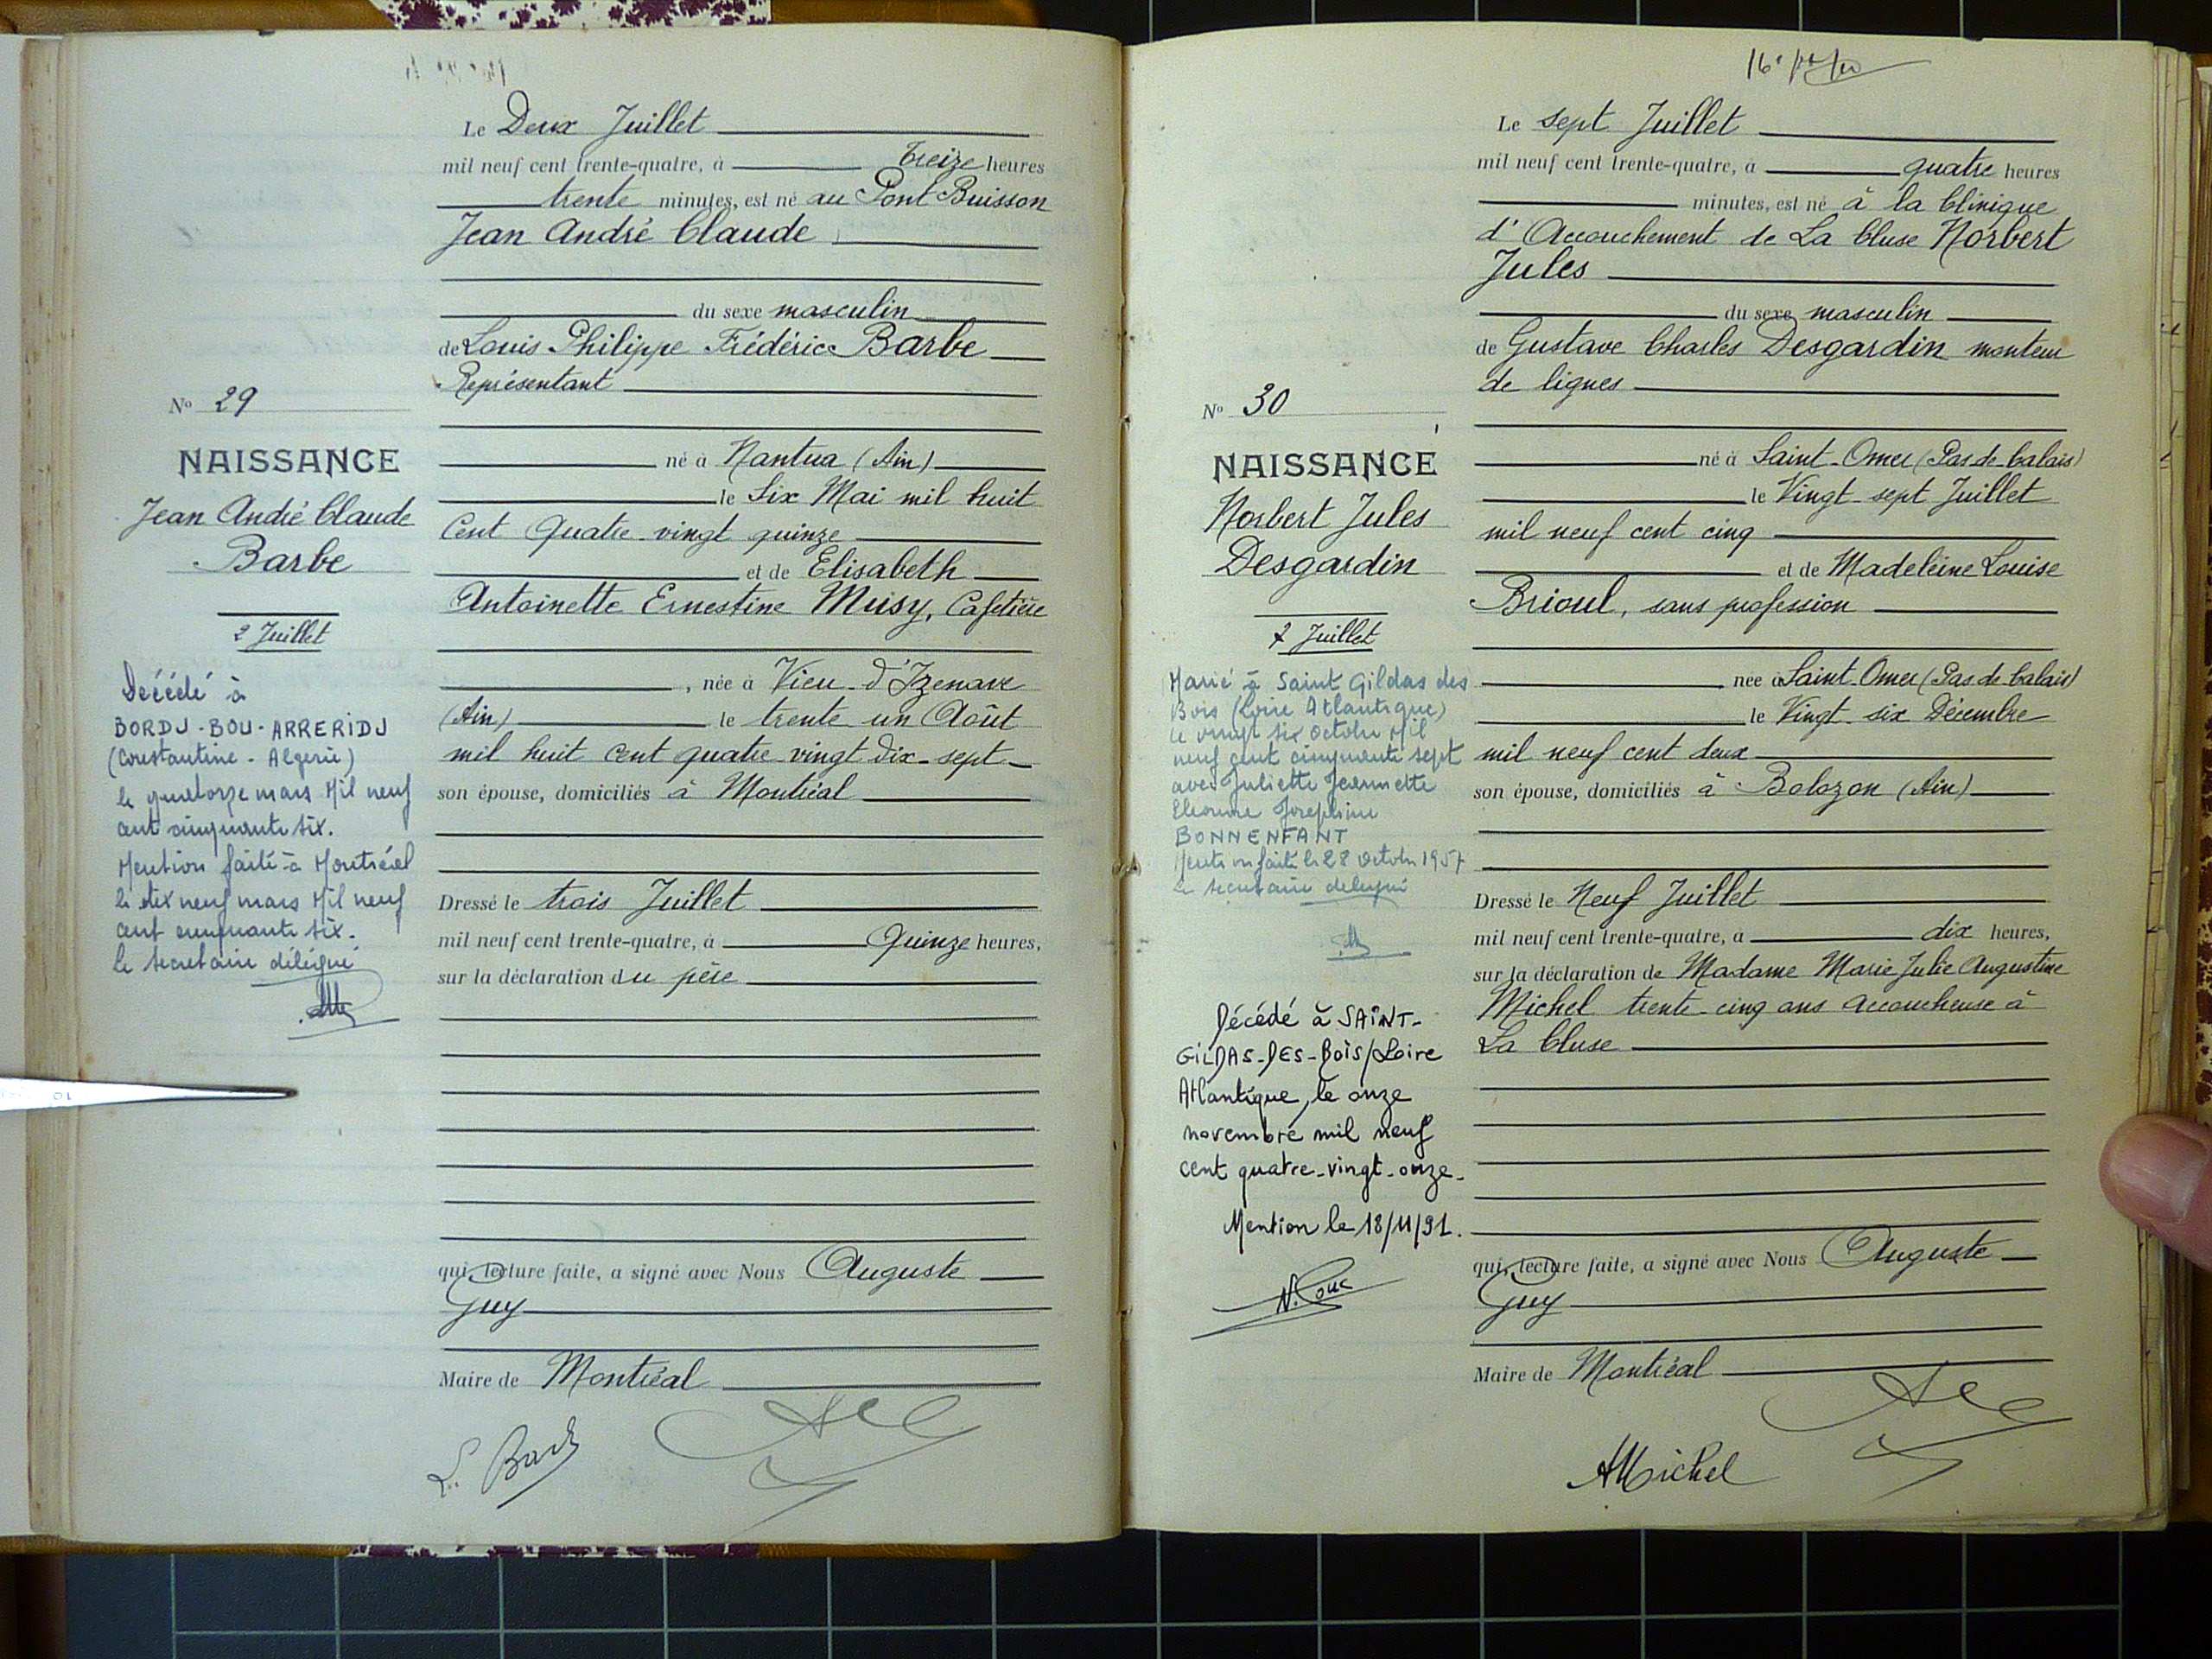 Le Deux Juillet
mil neuf cent trente-quatre, à Treize heures
trente minutes, est né au Pont Buisson
Jean André Claude
du sexe masculin
de Louis Philippe Frédéric Barbe
Représentant
né à Nantua (Ain)
le Six Mai mil huit
Cent Quatre-vingt quinze
et de Elisabeth
Antoinette Ernestine Musy, Cafetière
, née à Vieu-d'Izenave
(Ain) le trente un Août
mil huit cent quatre-vingt dix-sept
son épouse, domiciliés à Montréal
Dressé le trois Juillet
mil neuf cent trente-quatre, à Quinze heures,
sur la déclaration du père
qui, lecture faite, a signé avec Nous Auguste
Guy
Maire de Montréal
L. Barbe
No 29
NAISSANCE
Jean André Claude
Barbe
2 Juillet
Décédé à
BORDJ-BOU-ARRERIDJ
(Constantine - Algerie)
le quatorze mars Mil neuf
cent cinquante six.
Mention faite à Montréal
le dix neuf mars Mil neuf
cent cinquante six.
le secretaire délégué
Le sept Juillet
mil neuf cent trente-quatre, à quatre heures
minutes, est né à la Clinique
d'Accouchement de La Cluse Norbert
Jules
du sexe masculin
de Gustave Charles Desgardin monteur
de lignes
né à Saint-Omer (Pas-de-Calais)
le Vingt-sept Juillet
mil neuf cent cinq
et de Madeleine Louise
Brioul, sans profession
née à Saint-Omer (Pas-de-Calais)
le Vingt-six Décembre
mil neuf cent deux
son épouse, domiciliés à Bolozon (Ain)
Dressé le Neuf Juillet
mil neuf cent trente-quatre, à dix heures,
sur la déclaration de Madame Marie Julie Augustine
Michel trente-cinq ans accoucheuse à
La Cluse
qui, lecture faite, a signé avec Nous Auguste
Guy
Maire de Montréal
AMichel
No 30
NAISSANCE
Norbert Jules
Desgardin
7 Juillet
Marié à Saint Gildas des
Bois (Loire Atlantique)
le vingt six octobre Mil
neuf cent cinquante sept
avec Juliette Jeannette
Eleonore Josephine
BONNENFANT
Mention faite le 28 octobre 1957
le secretaire delegué
Décédé à SAINT-
GILDAS-DES-BOIS/Loire
Atlantique, le onze
novembre mil neuf
cent quatre-vingt-onze-
Mention le 18/11/91.